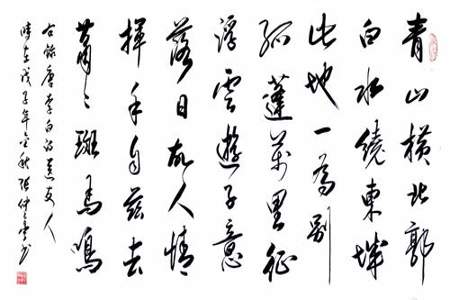 青山橫北郭
白水繞東城
此地一為別
孤蓬萬里征
浮雲遊子意
落日故人情
揮手自茲去
蕭々斑馬鳴
右錄唐李白詩送友人
時在戊子年金秋張仲書